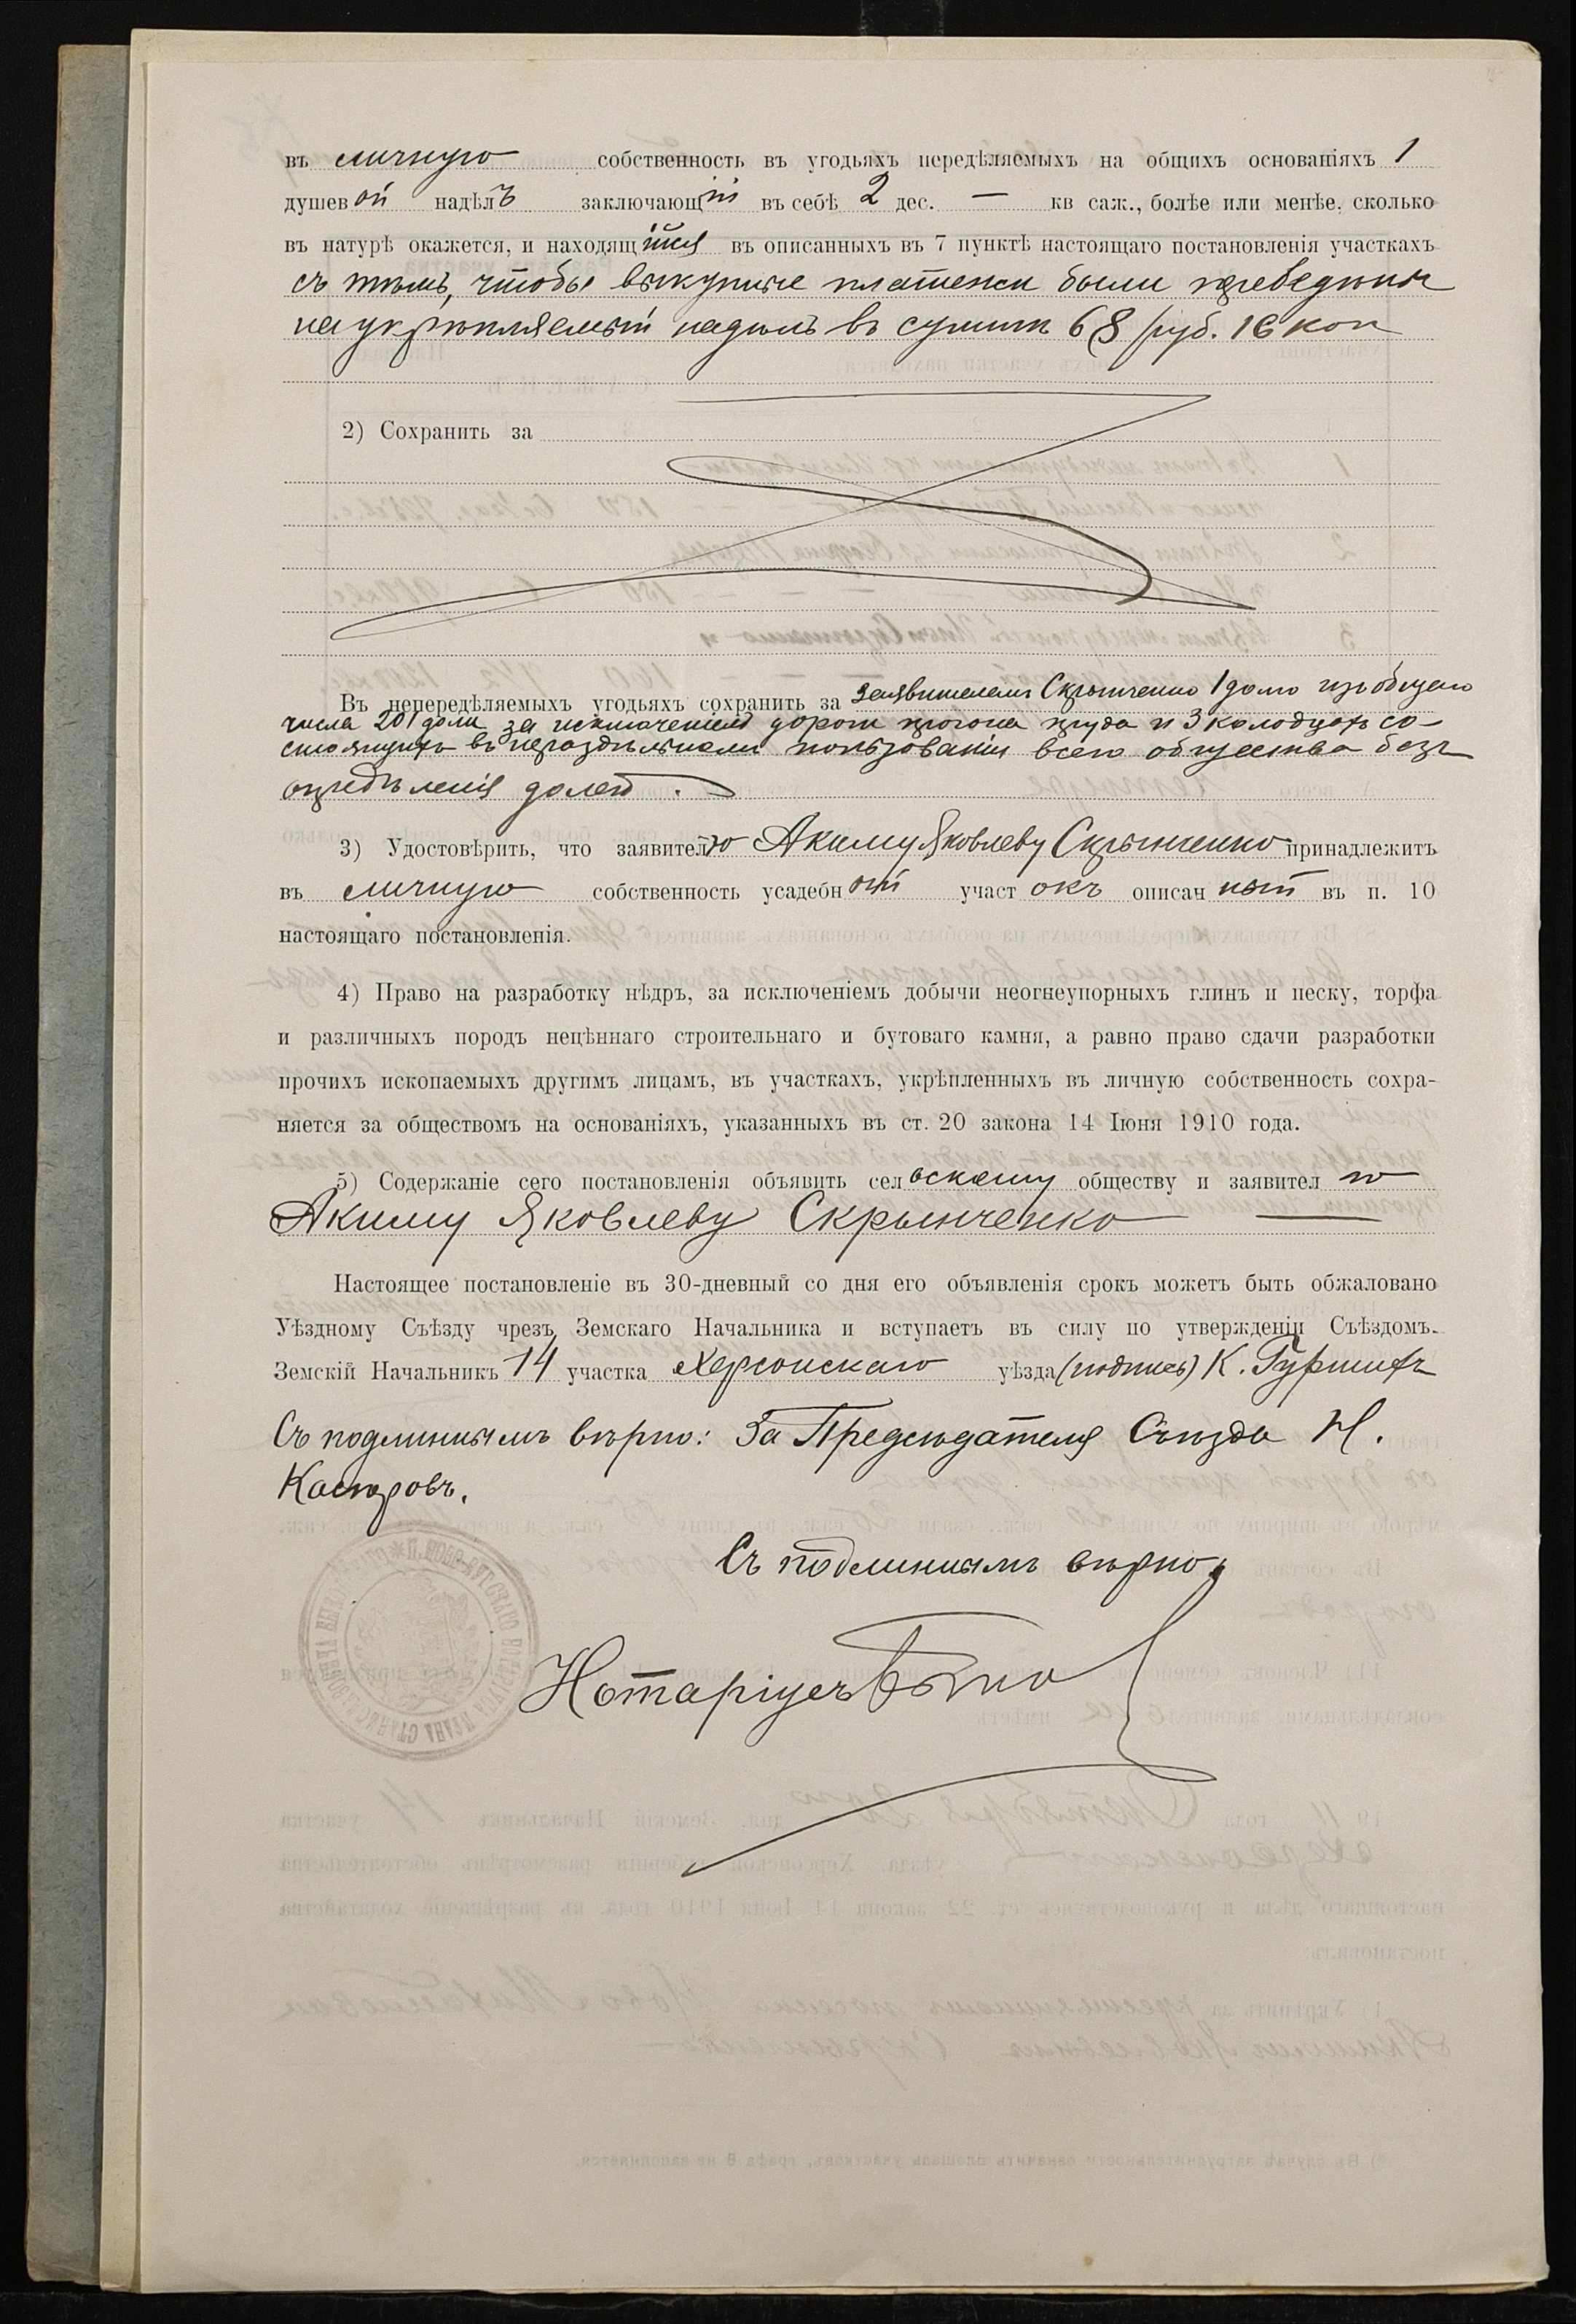 въ личную собственность въ угодьяхъ передѣляемыхъ на общихъ основаніяхъ 1
душевой надѣлъ заключающій въ себѣ 2 дес. — кв саж., болѣе или менѣе, сколько
въ натурѣ окажется, и находящійся въ описанныхъ въ 7 пунктѣ настоящаго постановленія участкахъ
съ тѣмъ, чтобы выкупные платежи были переведены
на укрѣпляемый надѣлъ въ суммѣ 68 руб. 16 коп
2) Сохранить за
Въ непередѣляемыхъ угодьяхъ сохранить за заявителемъ Скрынченко 1 долю изъ общаго
числа 201 доли за исключеніемъ дорогъ прогона пруда и 3 колодцахъ со-
стоящихъ въ нераздѣльномъ пользованіи всего общества безъ
опредѣленія долей.
3) Удостовѣрить, что заявителю Акиму Яковлеву Скрынченко принадлежитъ
въ личную собственность усадебный участокъ описанный въ п. 10
настоящаго постановленія.
4) Право на разработку нѣдръ, за исключеніемъ добычи неогнеупорныхъ глинъ и песку, торфа
и различныхъ породъ нецѣннаго строительнаго и бутоваго камня, а равно право сдачи разработки
прочихъ ископаемыхъ другимъ лицамъ, въ участкахъ, укрѣпленныхъ въ личную собственность сохра-
няется за обществомъ на основаніяхъ, указанныхъ въ ст. 20 закона 14 Іюня 1910 года.
5) Содержаніе сего постановленія объявить сельскому обществу и заявителю
Акиму Яковлеву Скрынченко —
Настоящее постановленіе въ 30-дневный со дня его объявленія срокъ можетъ быть обжаловано
Уѣздному Съѣзду чрезъ Земскаго Начальника и вступаетъ въ силу по утвержденіи Съѣздомъ.
Земскій Начальникъ 14 участка Херсонскаго уѣзда (подпись) К.
Съ подлиннымъ вѣрно: За Предсѣдателя Съѣзда Н.
Касперовъ.
Съ подлиннымъ вѣрно,
Нотаріусъ